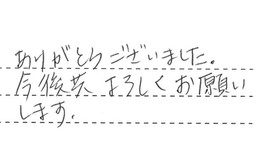 ありがとうございました。
今後共 よろしくお願い
します。